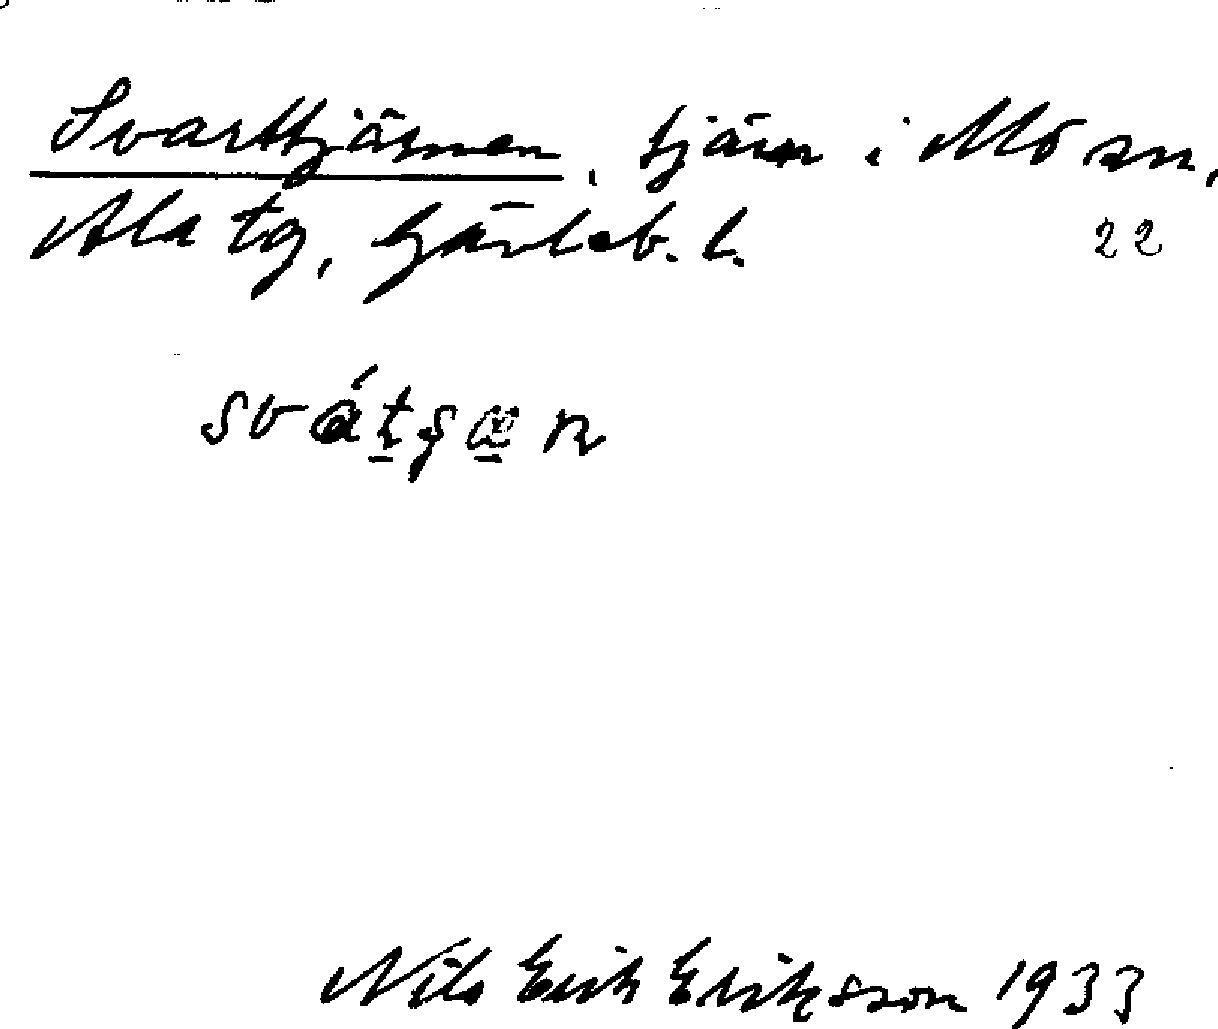 Svarttjärnen, tjärn i Mo sn,
Ala tg, Gävleb. l. 22
Nils Erik Eriksson 1933